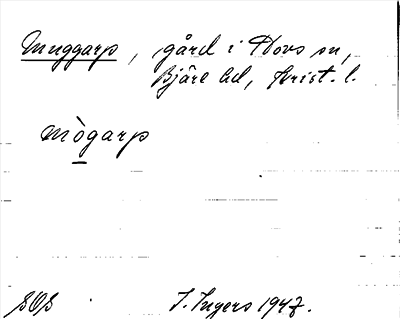 Muggarp, gård i Hovs sn,
Bjäre hd, Krist. l.
mògarp
SOS I. Ingers 1947.